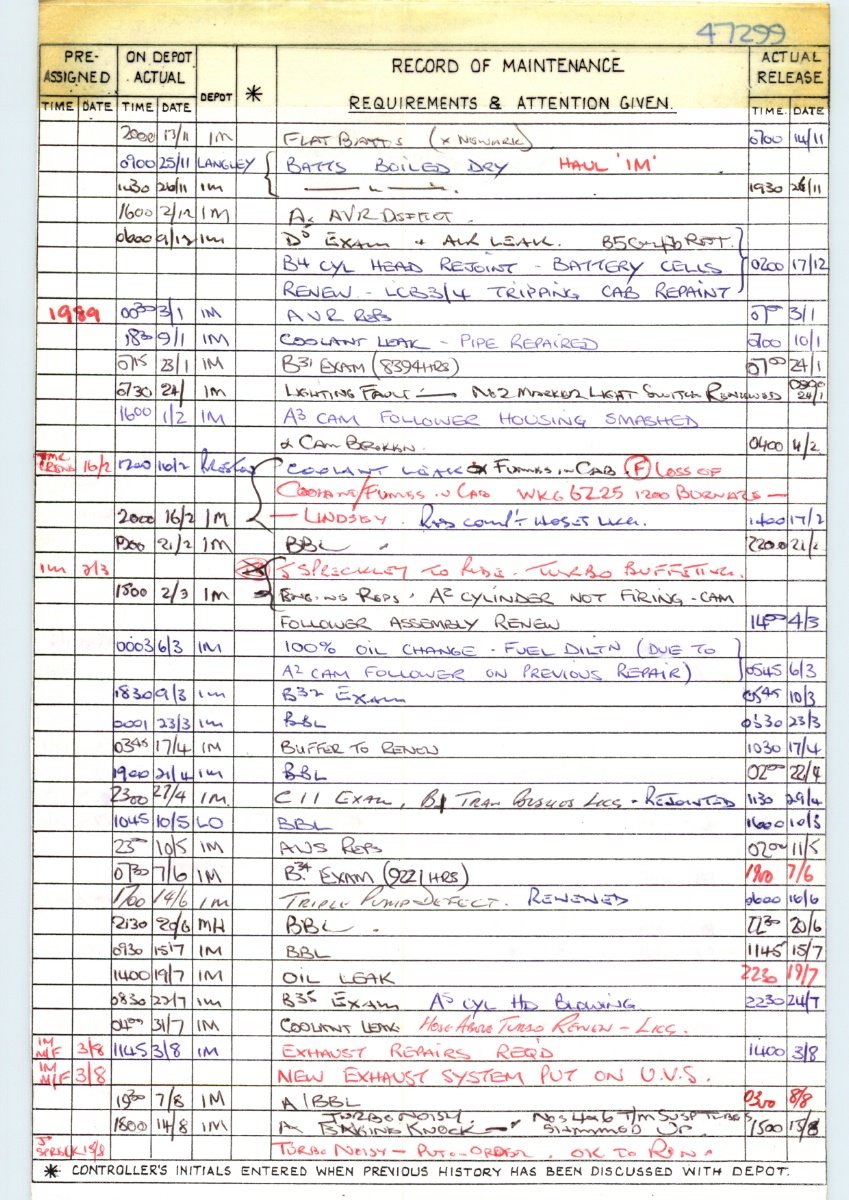 47299
PRE-ASSIGNED ON DEPOT ACTUAL DEPOT * RECORD OF MAINTENANCE REQUIREMENTS & ATTENTION GIVEN. ACTUAL RELEASE
TIME DATE TIME DATE TIME DATE
2000 13/11 IM FLAT BATTS (x NEWARK) 0700 14/11
0900 25/11 LANGLEY BATTS BOILED DRY HAUL 'IM'
1430 26/11 IM — " — 1930 26/11
1600 2/12 IM AVR DEFECT.
0600 9/12 IM EXAM + AIR LEAK.
B4 CYL HEAD REJOINT - BATTERY CELLS 0200 17/12
RENEW - LCB3/4 TRIPPING CAB REPAINT
1989 0030 3/1 IM AVR REPS 3/1
1830 9/1 IM COOLANT LEAK - PIPE REPAIRED 0700 10/1
0715 23/1 IM B31 EXAM (8394 HRS) 0700 24/1
0730 24/1 IM LIGHTING FAULT — No 2 MARKER LIGHT SWITCH RENEWED 24/1
1600 1/2 IM A3 CAM FOLLOWER HOUSING SMASHED
& CAM BROKEN. 0400 4/2
16/2 1200 16/2 COOLANT LEAK FUMES IN CAB. (F) LOSS OF
COOLANT/FUMES IN CAB WKG 6Z25 1200 BURNGATE —
2000 16/2 IM — LINDSEY. 1400 17/2
21/2 IM BBL 2200 21/2
IM 2/3 J SPRECKLEY TO RIDE. TURBO BUFFETING.
1500 2/3 IM ENGINE REPS. A2 CYLINDER NOT FIRING - CAM
FOLLOWER ASSEMBLY RENEW 1400 4/3
0003 6/3 IM 100% OIL CHANGE - FUEL DILTN (DUE TO
A2 CAM FOLLOWER ON PREVIOUS REPAIR) 0545 6/3
1830 9/3 IM B32 EXAM 0545 10/3
0001 23/3 IM BBL 0330 23/3
0345 17/4 IM BUFFER TO RENEW 1030 17/4
1900 21/4 IM BBL 0200 22/4
2300 27/4 IM C11 EXAM, REJOINTED 1130 29/4
1045 10/5 LO BBL 1600 10/5
2300 10/5 IM AWS REPS 0200 11/5
0730 7/6 IM B34 EXAM (9221 HRS) 1900 7/6
1700 14/6 IM TRIPLE PUMP DEFECT. RENEWED 0600 16/6
2130 20/6 MH BBL. 2230 20/6
0930 15/7 IM BBL 1145 15/7
1400 19/7 IM OIL LEAK 2230 19/7
0830 22/7 IM B35 EXAM A5 CYL HD BLOWING 2230 24/7
0400 31/7 IM COOLANT LEAK HOSE ABOVE TURBO RENEW - LKG.
IM M/F 3/8 1145 3/8 IM EXHAUST REPAIRS REQ'D 1400 3/8
IM M/F 3/8 NEW EXHAUST SYSTEM PUT ON U.V.S.
1930 7/8 IM A/BBL 0300 8/8
1800 14/8 IM TURBO NOISY. BANGING KNOCK — Nos 4 & 6 T/M SUSP TUBES SHIMMED UP. 1500 15/8
15/8 TURBO NOISY - PUT ON ORDER. OK TO RUN
* CONTROLLER'S INITIALS ENTERED WHEN PREVIOUS HISTORY HAS BEEN DISCUSSED WITH DEPOT.